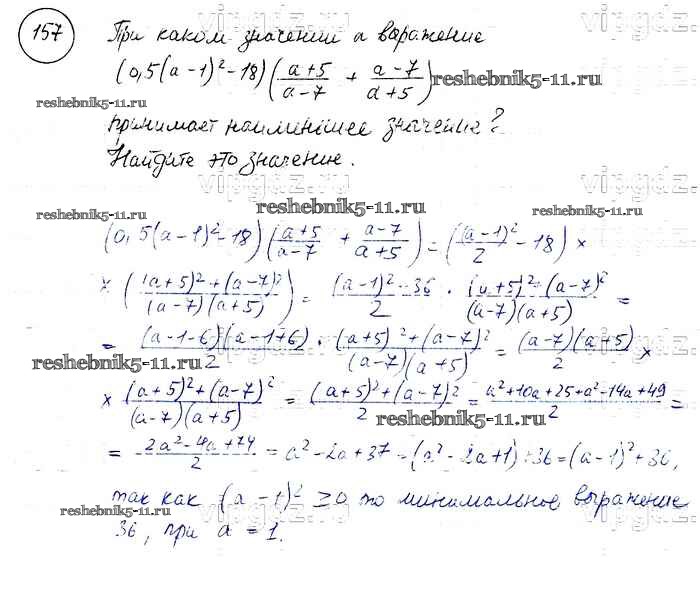 157 При каком значении а выражение
(0,5(a-1)²-18)((a+5)/(a-7) + (a-7)/(a+5)) reshebnik5-11.ru
reshebnik5-11.ru
принимает наименьшее значение?
Найдите это значение.
vipgdz.ru
reshebnik5-11.ru reshebnik5-11.ru
(0,5(a-1)²-18)((a+5)/(a-7) + (a-7)/(a+5)) = ((a-1)²/2 - 18) ×
× (((a+5)²+(a-7)²)/((a-7)(a+5))) = ((a-1)²-36)/2 · ((a+5)²+(a-7)²)/((a-7)(a+5)) =
= ((a-1-6)(a-1+6))/2 · ((a+5)²+(a-7)²)/((a-7)(a+5)) = ((a-7)(a+5))/2 ×
reshebnik5-11.ru
× ((a+5)²+(a-7)²)/((a-7)(a+5)) = ((a+5)²+(a-7)²)/2 = (a²+10a+25+a²-14a+49)/2 =
reshebnik5-11.ru
= (2a²-4a+74)/2 = a²-2a+37 = (a²-2a+1)+36 = (a-1)²+36,
так как (a-1)² ≥ 0 то минимальное выражение
reshebnik5-11.ru
36, при a = 1.